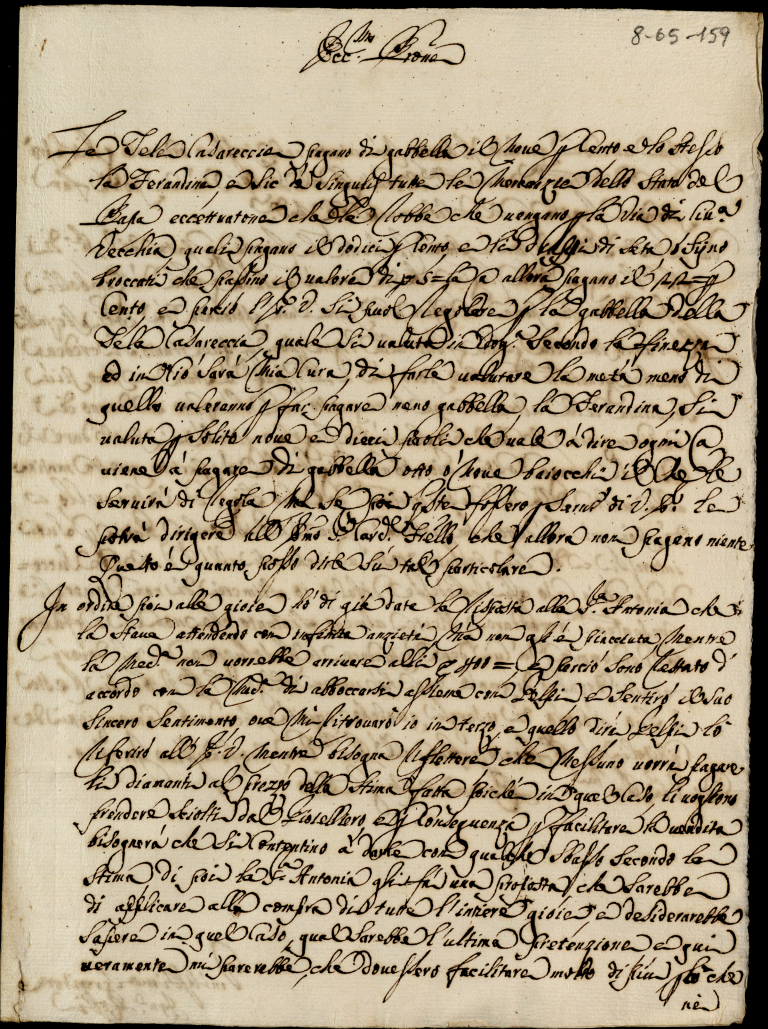 8-65-159
Ecc.mo Prone
Le Tele Casareccie pagano di gabbella il Nove p Cento e lo stesso
la Ferandina, e sic de Singulis tutte le Mercanzie dello Stato del
Papa eccettuatone che le Robbe che vengano p la via di Civ.a
Vecchia, quali pagano il dodici p Cento, e li drappi di seta ò sijno
broccati che passino il valore di 5 = la Ca allora pagano il p
Cento, e perciò V.S. si puol Regolare p la gabbella della
Tela Casareccia, quale si valuta in Dog.a secondo la finezza
ed in ciò sarà Mia Cura, di farle valutare la metà meno di
quello valeranno p far pagare meno gabbella, la Ferandina, si
valuta p solito nove e dieci paoli che vale à dire ogni Ca
viene à pagare di gabbella otto ò Nove baiocchi il che le
servirà di regola Ma se poi q.ste fossero p serv.o di V. le
potrà dirigere all Card.l che allora non pagano niente
Questo è quanto posso dirle sù tal particolare.
In ordine poi alle gioie hò di già date la Risposta alla S.ra Antonia che
la stava attendendo con infinita anzietà, Mà non gl'è piaciuta, Mentre
la Med.a non vorrebbe arrivare alli 400 =, e perciò sono restato d'
accordo con la Med.a di abboccarsi assieme con Belpin e sentirò il suo
sincero sentimento ove Mi ritrovarò io in terzo, e quello dirà Belpin lò
riferirò all V.S. Mentre bisogna riflettere che Nessuno vorrà pagare
li diamanti al prezzo della stima fatta poiché in quel Caso, li vogliono
prendere sciolti dal Gioielliero e p Conseguenza p facilitare la vendita
bisognerà che si Contentino à darle con qualche sbasso secondo la
stima, Di poi la S.ra Antonia gli fà una proposta, che sarebbe
di applicare alla compra di tutte l'intiere gioie e desiderarebbe
sapere in quel Caso, qual sarebbe l'ultima pretenzione e qui
veramente mi parerebbe, che dovessero facilitare molto di più che
ne